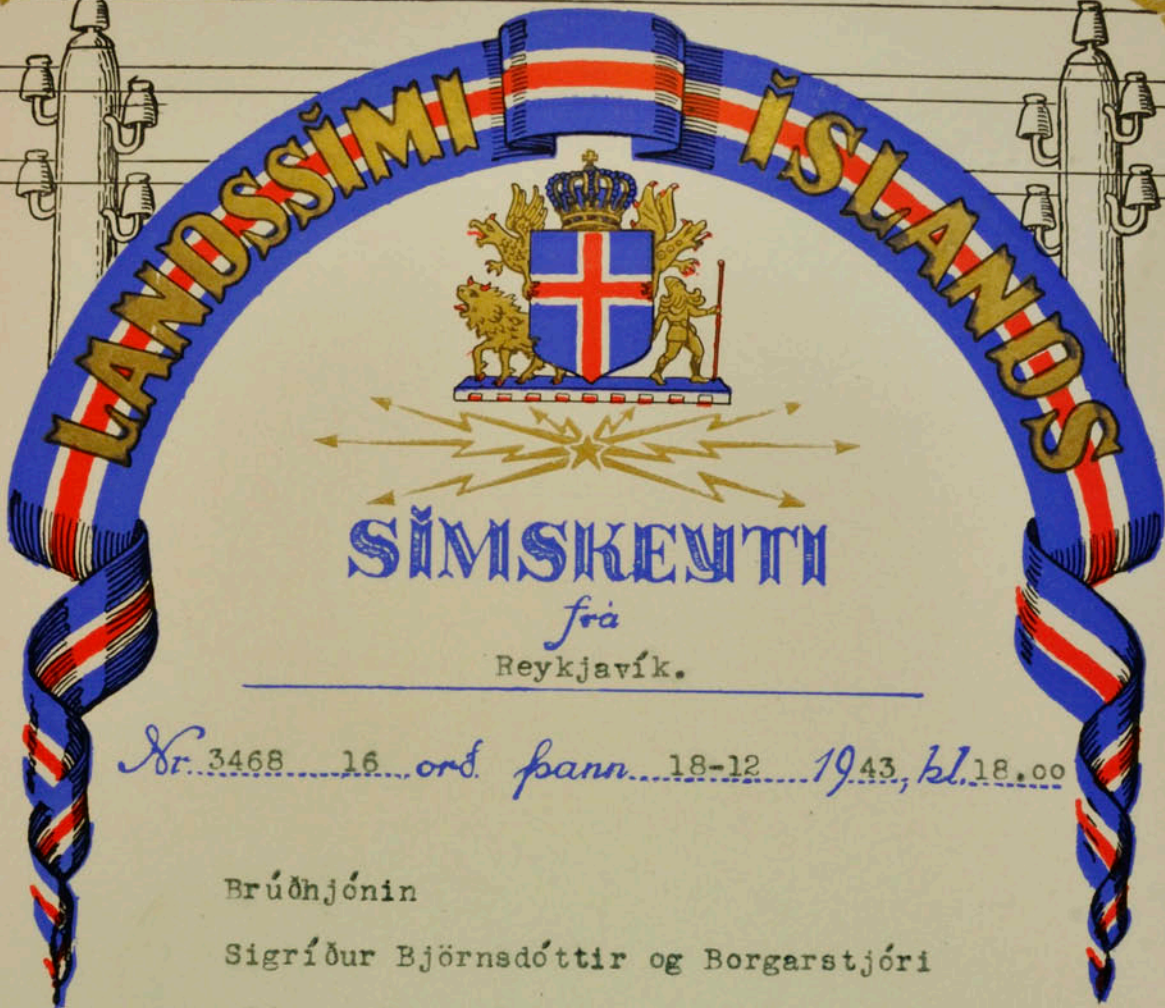 LANDSSÍMI ÍSLANDS
SÍMSKEYTI
frá
Reykjavík.
Nr. 3468 16 orð. þann 18-12 1943, kl. 18.00
Brúðhjónin
Sigríður Björnsdóttir og Borgarstjóri